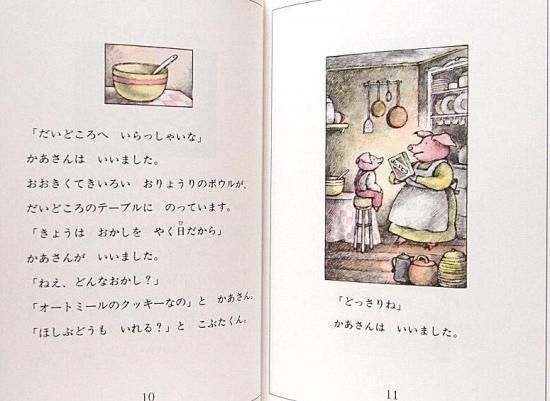 「だいどころへ　いらっしゃいな」
かあさんは　いいました。
おおきくてきいろい　おりょうりのボウルが、
だいどころのテーブルに　のっています。
「きょうは　おかしを　やく日だから」
かあさんが　いいました。
「ねえ、どんなおかし？」
「オートミールのクッキーなの」と　かあさん。
「ほしぶどうも　いれる？」と　こぶたくん。
10
「どっさりね」
かあさんは　いいました。
11